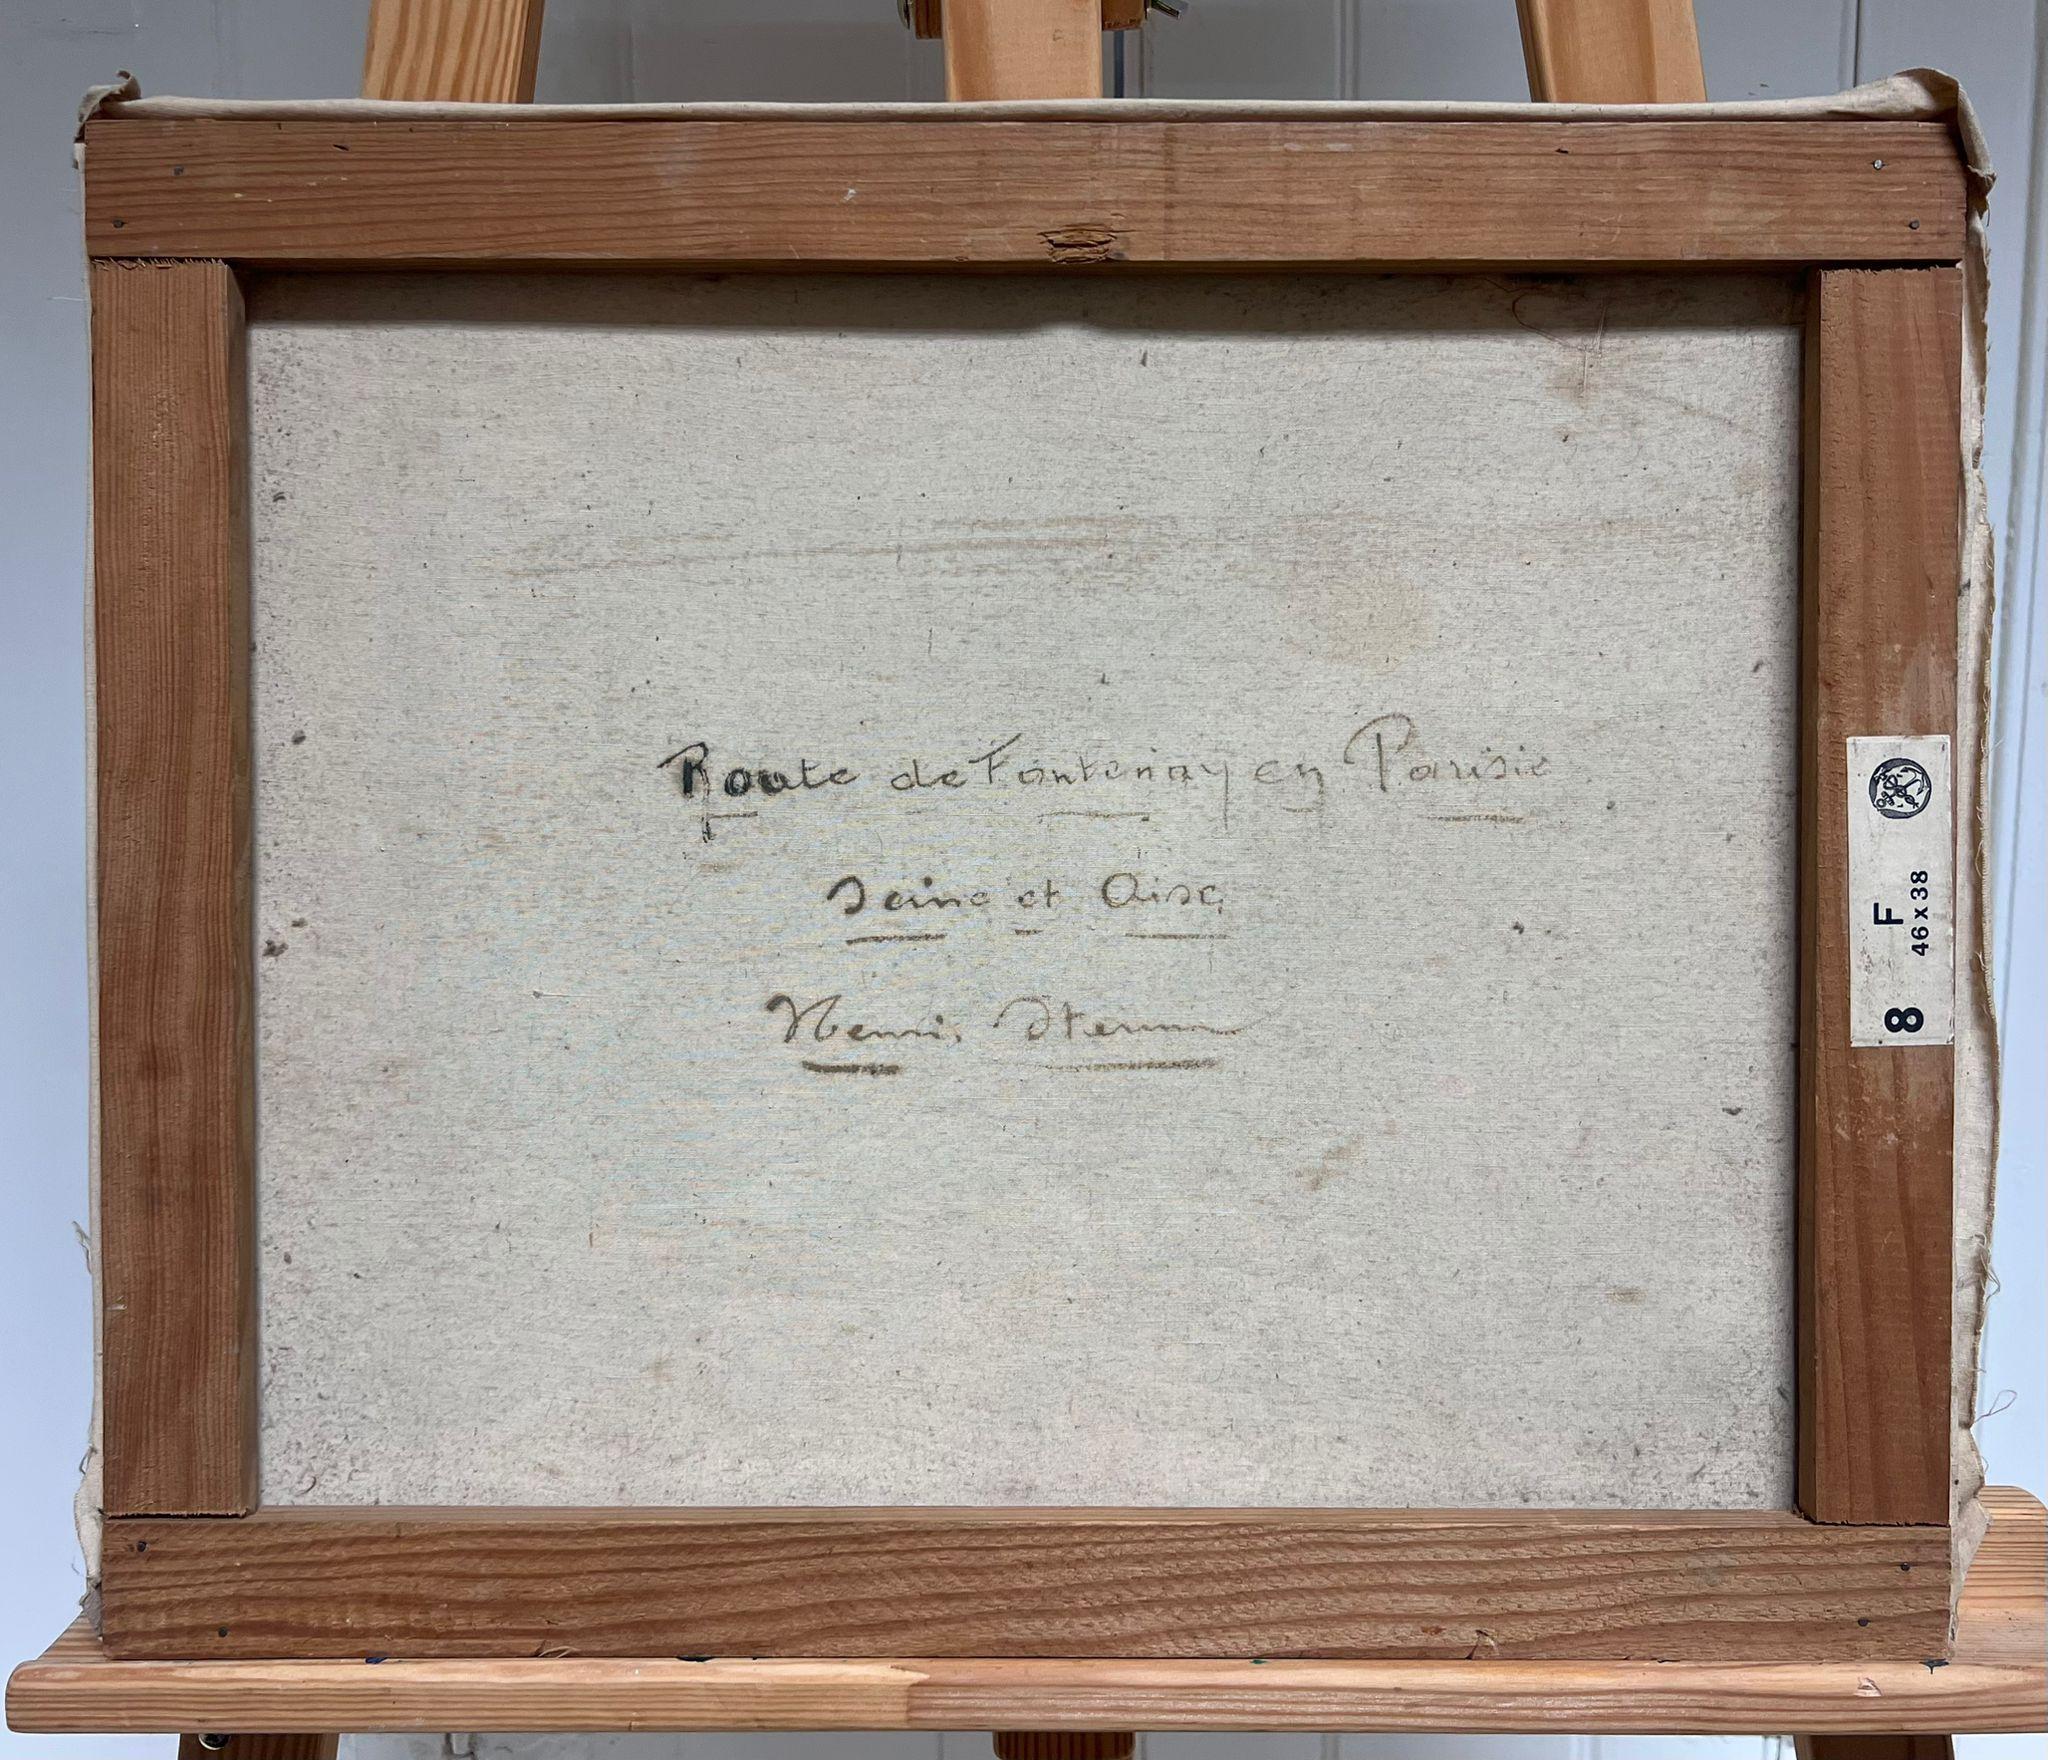 Route de Fontenay en Parisis
Seine et Oise
Henri
8 F
46 x 38